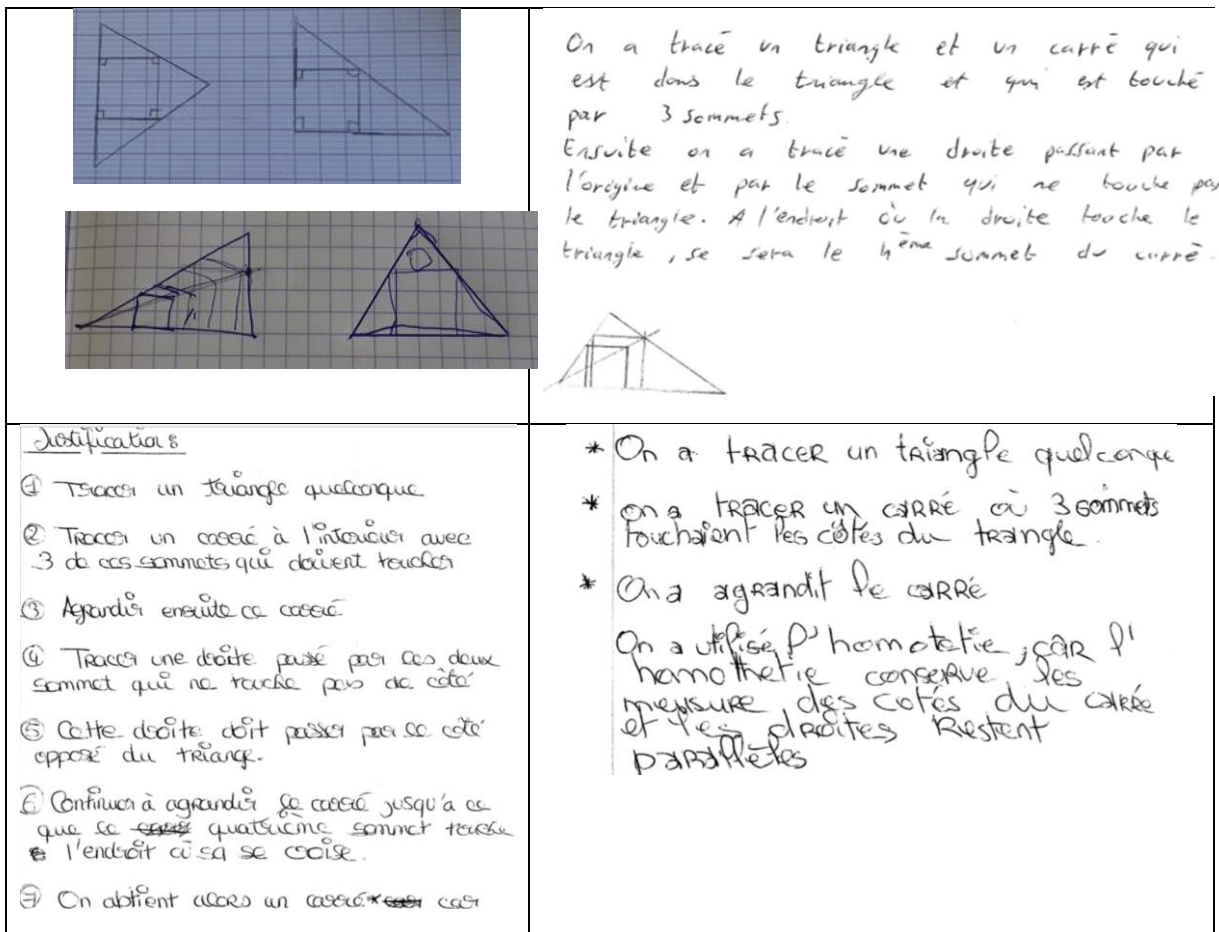 On a tracé un triangle et un carré qui
est dans le triangle et qui est touché
par 3 sommets.
Ensuite on a tracé une droite passant par
l'origine et par le sommet qui ne touche pas
le triangle. A l'endroit où la droite touche le
triangle, se sera le 4ème sommet du carré.
Justification :
① Tracer un triangle quelconque
② Tracer un carré à l'intérieur avec
3 de ces sommets qui doivent toucher
③ Agrandir ensuite ce carré
④ Tracer une droite passé par ces deux
sommet qui ne touche pas de côté
⑤ Cette droite doit passer par le côté
opposé du triangle.
⑥ Continuer à agrandir le carré jusqu'a ce
que le quatrième sommet touche
l'endroit où sa se croise.
⑦ On obtient alors un carré car
* On a tracer un triangle quelconque
* on a tracer un carré où 3 sommets
touchaient les côtés du trangle.
* On a agrandit le carré
On a utilisé l'homotetie, car l'
homothetie conserve les
mensure des cotés du carré
et les droites restent
parallètes